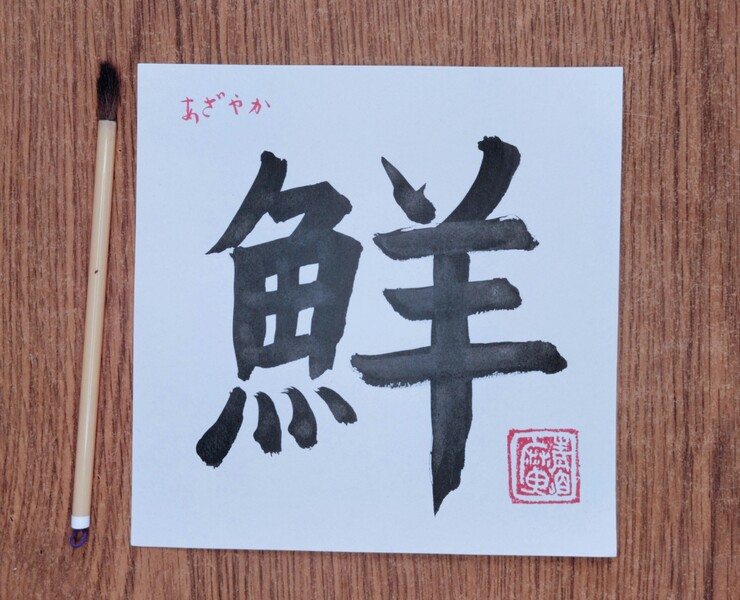 あざやか
鮮